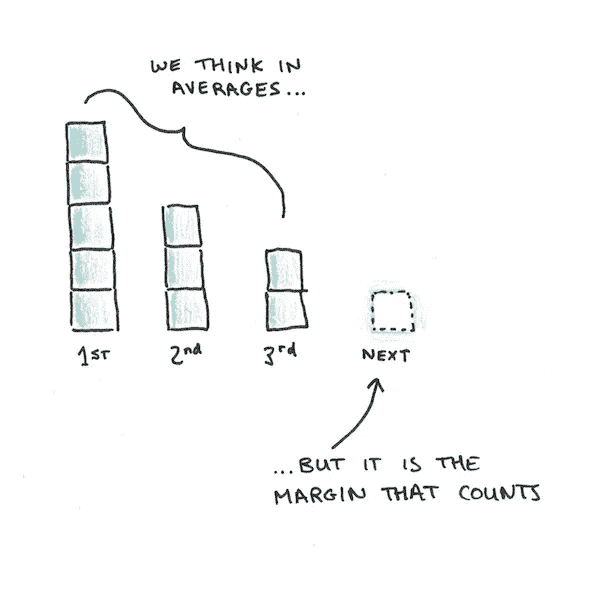 WE THINK IN
AVERAGES...
1ST
2nd
3rd
NEXT
...BUT IT IS THE
MARGIN THAT COUNTS